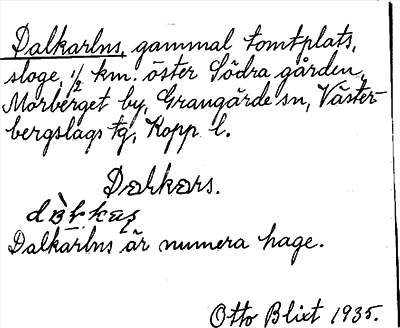 Dalkarlns, gammal tomtplats,
sloge, 1/2 km. öster Södra gården,
Morberget by, Grangärde sn, Väster-
bergslags tg, Kopp. l.
Dalkars.
Dalkarlns är numera hage.
Otto Blixt 1935.